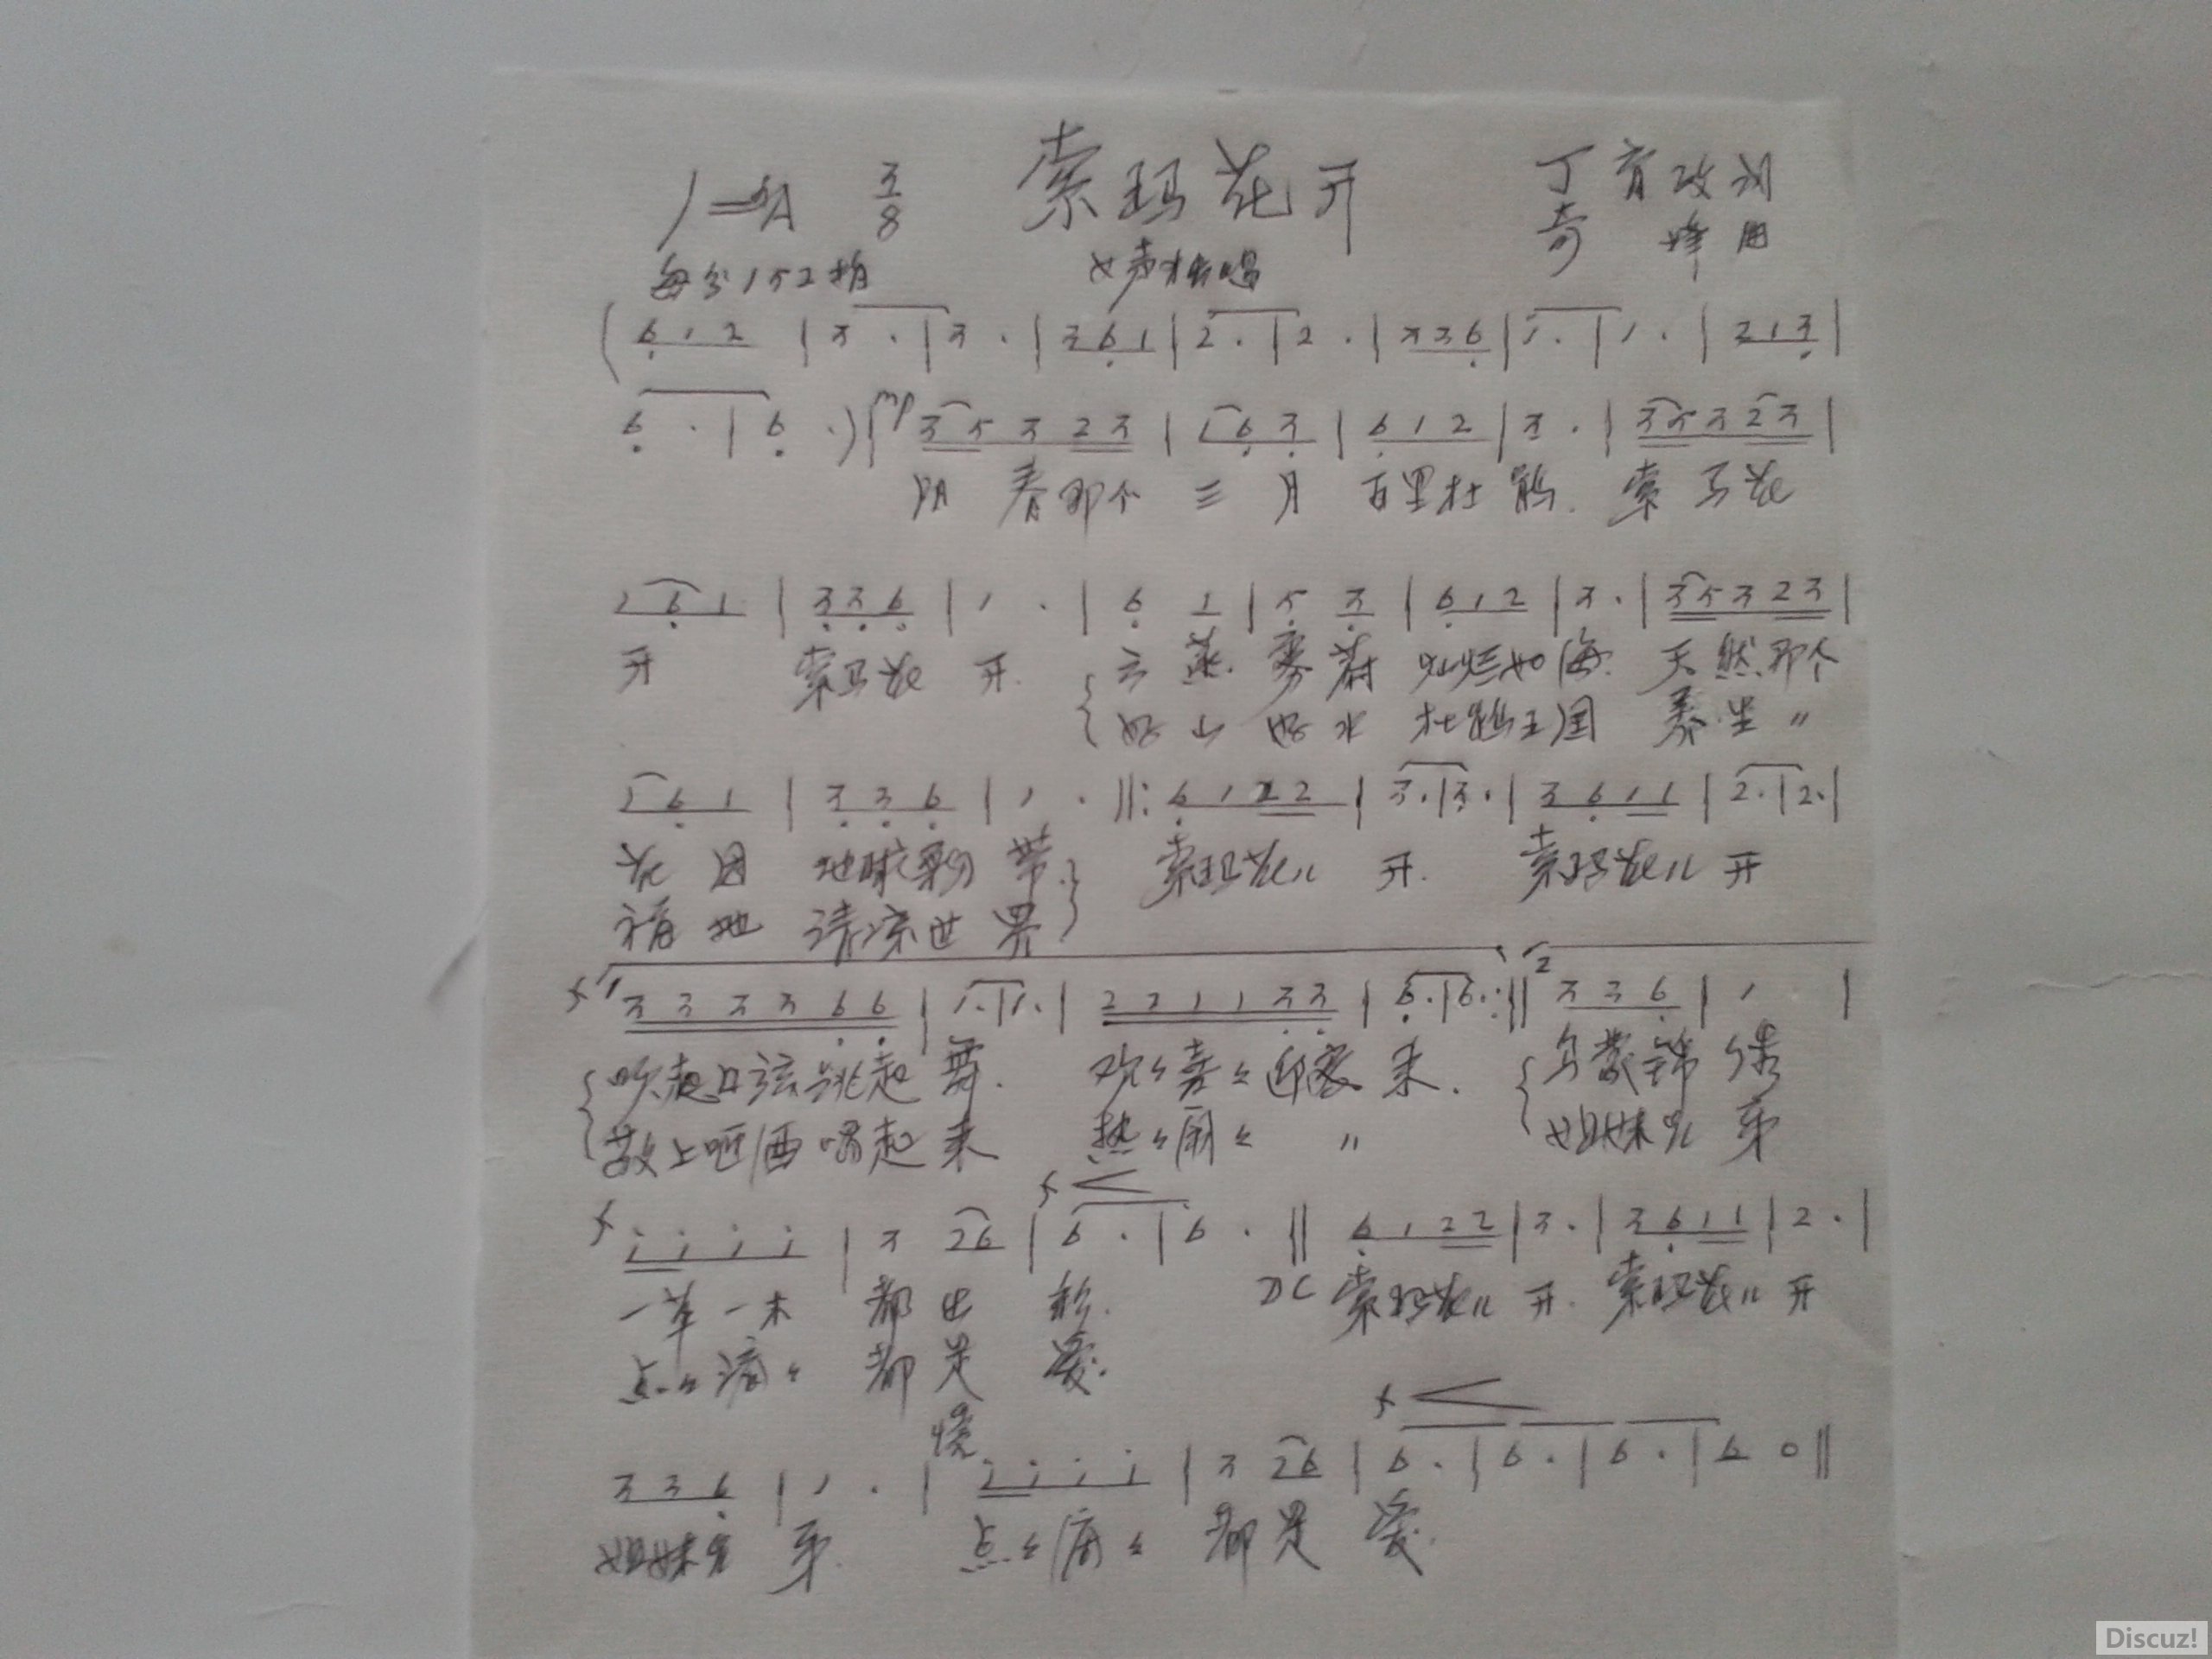 索玛花开 丁育政词
奇峰曲
3/8
每分152拍 女声独唱
(6 1 2 | 3 . | 3 . | 3 6 1 | 2 . | 2 . | 3 3 6 | 1 . | 1 . | 2 1 3 |
6 . | 6 . ) | mp 3 5 3 2 3 | 1 6 3 | 6 1 2 | 3 . | 3 5 3 2 3 |
阳春那个三月 百里杜鹃. 索马花
1 6 1 | 3 3 6 | 1 . | 6 1 | 5 3 | 6 1 2 | 3 . | 3 5 3 2 3 |
开 索马花开. 云蒸雾蔚 灿烂如海. 天然那个
好山好水 杜鹃王国 养生〃
1 6 1 | 3 3 6 | 1 . ||: 6 1 2 2 | 3 . | 3 . | 3 6 1 1 | 2 . | 2 . |
花园 地球彩带. 索玛花儿开. 索玛花儿开
福地 清凉世界
f 1 3 3 3 3 6 6 | 1 . | 1 . | 2 2 1 1 3 3 | 6 . | 6 . :|| 2 3 3 6 | 1 |
吹起口弦跳起舞. 欢々喜々迎客来. 乌蒙锦绣
敬上咂酒唱起来 热々闹々 〃 姐妹兄弟
f <
f i i i i | 3 2 6 | 6 . | 6 . || 6 1 2 2 | 3 . | 3 6 1 1 | 2 . |
一草一木 都出彩. DC 索玛花儿开. 索玛花儿开
点々滴々 都是爱.
慢 f <
3 3 6 | 1 . | i i i i | 3 2 6 | 6 . | 6 . | 6 . | 6 0 ||
姐妹兄弟. 点々滴々 都是爱.
Discuz!